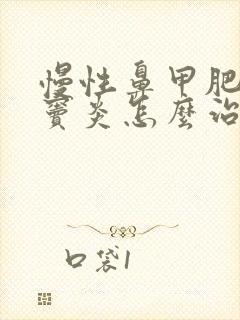 慢性鼻甲肥
竇炎怎麼治
口袋1